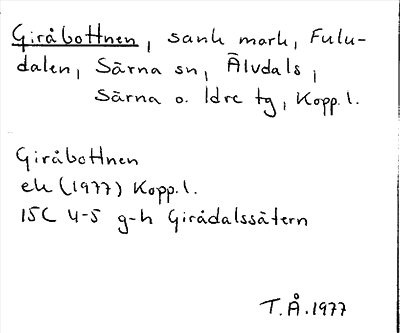 Giråbottnen, sank mark, Fulu-
dalen, Särna sn, Älvdals,
Särna o. Idre tg, Kopp. l.
Giråbottnen
ek (1977) Kopp. l.
15C 4-5 g-h Girådalssätern
T.Å. 1977